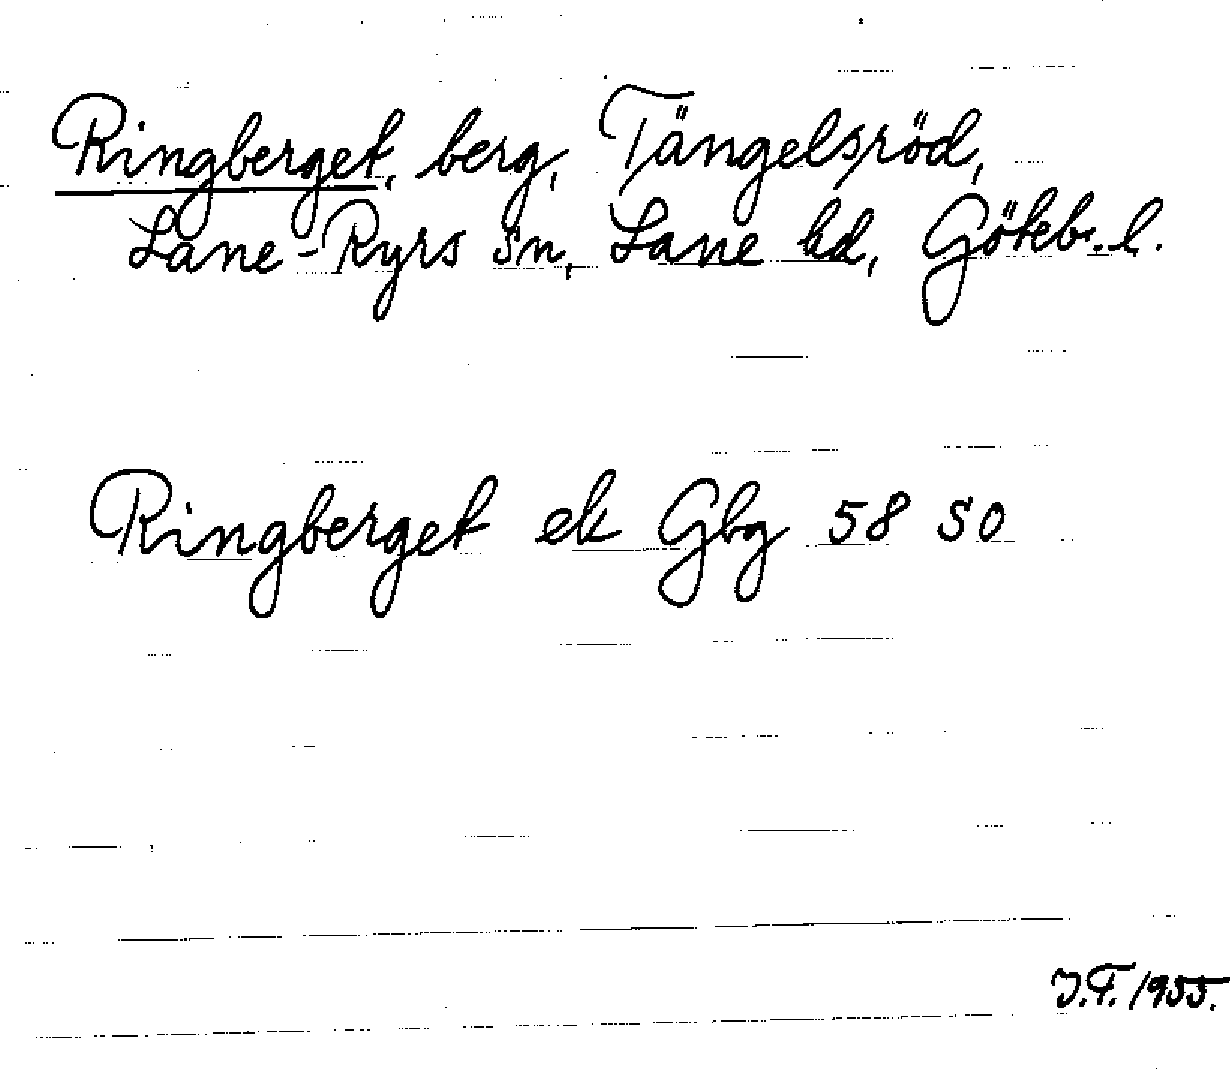 Ringberget, berg, Tängelsröd,
Lane-Ryrs sn, Lane hd, Göteb. l.
Ringberget ek Gbg 58 SO
J.F. 1955.